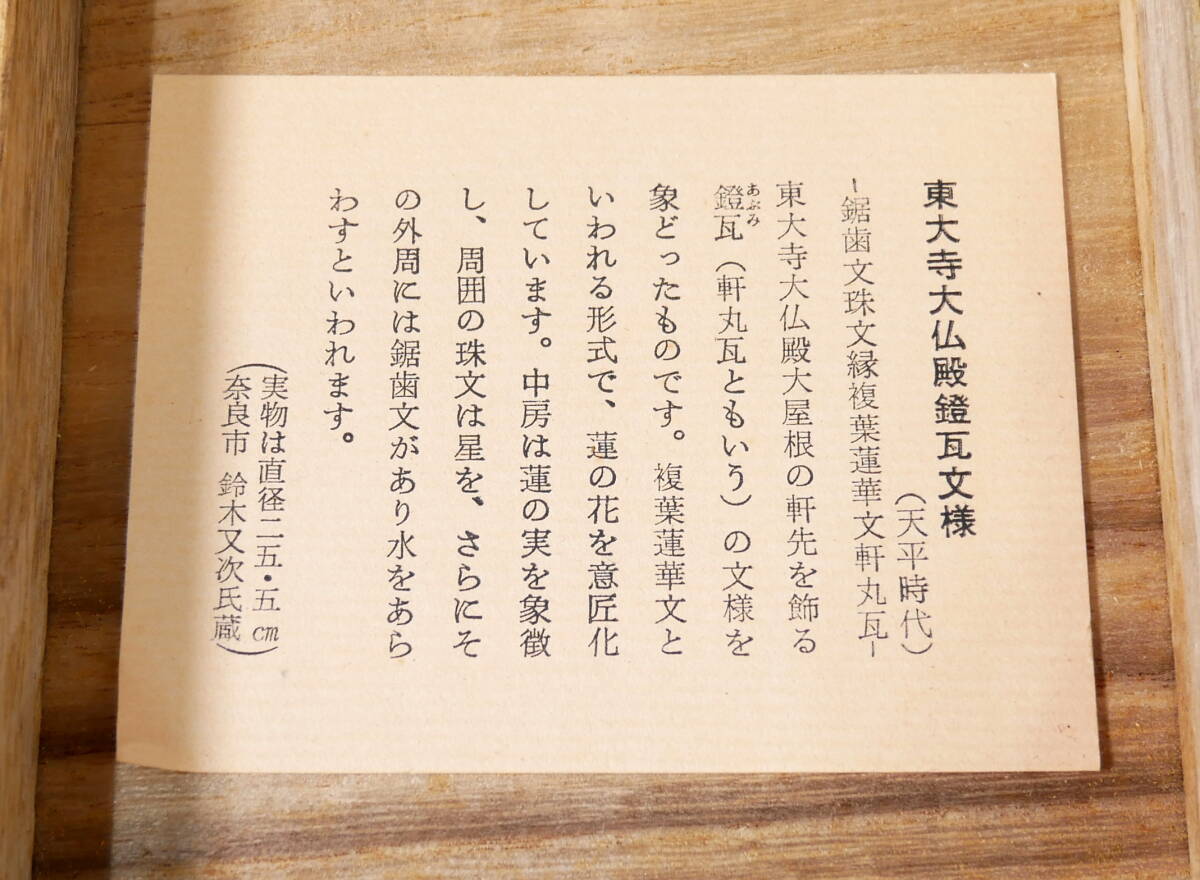 東大寺大仏殿鐙瓦文様
（天平時代）
－鋸歯文珠文縁複葉蓮華文軒丸瓦－
東大寺大仏殿大屋根の軒先を飾る
鐙瓦（軒丸瓦ともいう）の文様を
あぶみ
象どったものです。複葉蓮華文と
いわれる形式で、蓮の花を意匠化
しています。中房は蓮の実を象徴
し、周囲の珠文は星を、さらにそ
の外周には鋸歯文があり水をあら
わすといわれます。
（実物は直径二五・五cm
奈良市 鈴木又次氏蔵）